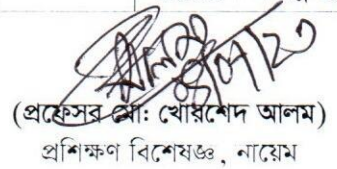 (প্রফেসর মো: খোরশেদ আলম)
প্রশিক্ষণ বিশেষজ্ঞ, নায়েম